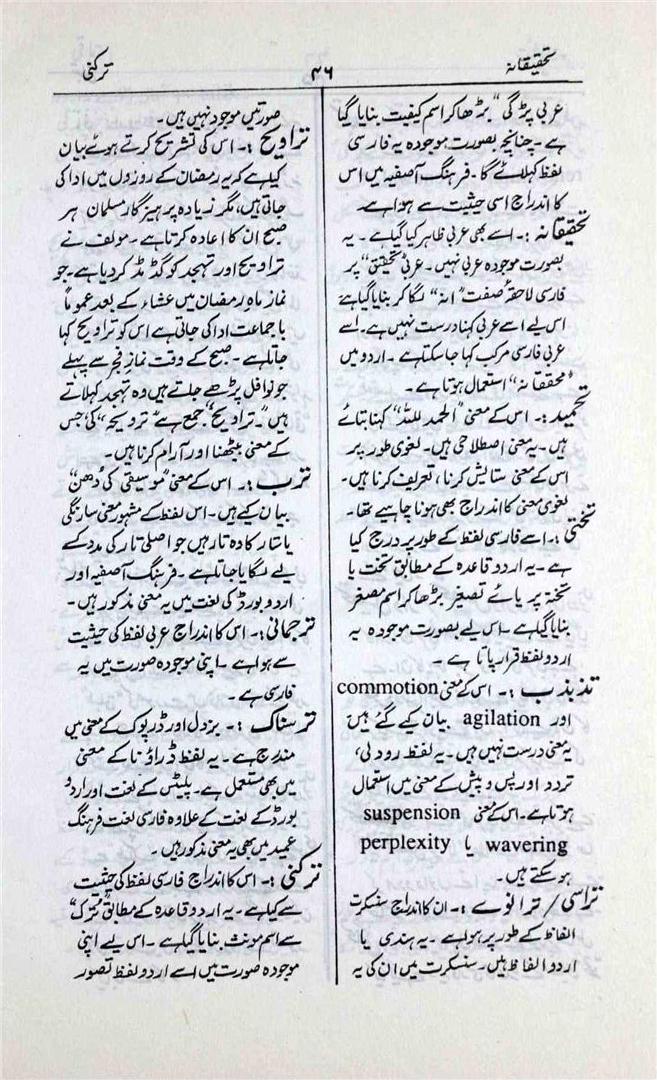 تحقیقانہ
۴۶
ترکنی
عربی پڑ گی "بڑھاکر اسم کیفیت بنایا گیا
ہے۔ چنانچہ بصورت موجودہ یہ فارسی
لفظ کہلائے گا۔ فرہنگ آصفیہ میں اس
کا اندراج اسی حیثیت سے ہوا ہے۔
تحقیقانہ :۔ اسے بھی عربی ظاہر کیا گیا ہے۔ یہ
بصورت موجودہ عربی نہیں۔ عربی "تحقیق" پر
فارسی لاحقۂ صفت "انہ" لگا کر بنایا گیا ہے
اس لیے اسے عربی کہنا درست نہیں ہے۔ اسے
عربی فارسی مرکب کہا جا سکتا ہے۔ اردو میں
"محققانہ" استعمال ہوتا ہے۔
تحمید :۔ اس کے معنی "الحمد للہ" کہنا بتائے
ہیں۔ یہ معنی اصطلاحی ہیں۔ لغوی طور پر
اس کے معنی ستایش کرنا، تعریف کرنا ہیں۔
لغوی معنی کا اندراج بھی ہونا چاہیے تھا۔
تختی :۔ اسے فارسی لفظ کے طور پر درج کیا
ہے۔ یہ اردو قاعدہ کے مطابق تخت یا
تختہ پر یائے تصغیر بڑھا کر اسم مصغر
بنایا گیا ہے۔ اس لیے بصورت موجودہ یہ
اردو لفظ قرار پاتا ہے۔
تذبذب :۔ اس کے معنی commotion
اور agilation بیان کیے گئے ہیں
یہ معنی درست نہیں ہیں۔ یہ لفظ رودلی،
تردد اور پس و پیش کے معنی میں استعمال
ہوتا ہے۔ اس کے معنی suspension
wavering یا perplexity
ہو سکتے ہیں۔
تراسی / ترانوے :۔ ان کا اندراج سنسکرت
الفاظ کے طور پر ہوا ہے۔ یہ ہندی یا
اردو الفاظ ہیں۔ سنسکرت میں ان کی یہ
صورتیں موجود نہیں ہیں۔
تراویح :۔ اس کی تشریح کرتے ہوئے بیان
کیا ہے کہ یہ رمضان کے روزوں میں ادا کی
جاتی ہیں، مگر زیادہ پرہیزگار مسلمان ہر
صبح ان کا اعادہ کرتا ہے۔ مولف نے
تراویح اور تہجد کو گڈ مڈ کر دیا ہے۔ جو
نماز ماہِ رمضان میں عشاء کے بعد عموماً
با جماعت ادا کی جاتی ہے اس کو تراویح کہا
جاتا ہے۔ صبح کے وقت نماز فجر سے پہلے
جو نوافل پڑھے جاتے ہیں وہ تہجد کہلاتے
ہیں۔ "تراویح" جمع ہے "ترویحہ" کی، جس
کے معنی بیٹھنا اور آرام کرنا ہیں۔
ترب :۔ اس کے معنی "موسیقی کی دُھن"
بیان کیے ہیں۔ اس لفظ کے مشہور معنی سارنگی
یا ستار کا وہ تار ہیں جو اصلی تار کی مدد کے
لیے لگایا جاتا ہے۔ فرہنگ آصفیہ اور
اردو بورڈ کی لغت میں یہ معنی مذکور ہیں۔
ترجمانی :۔ اس کا اندراج عربی لفظ کی حیثیت
سے ہوا ہے۔ اپنی موجودہ صورت میں یہ
فارسی ہے۔
ترسناک :۔ بزدل اور ڈرپوک کے معنی میں
مندرج ہے۔ یہ لفظ ڈراؤنا کے معنی
میں بھی مستعمل ہے۔ پلیٹس کے لغت اور اردو
بورڈ کے لغت کے علاوہ فارسی لغت فرہنگ
عمید میں بھی یہ معنی مذکور ہیں۔
ترکنی :۔ اس کا اندراج فارسی لفظ کی حیثیت
سے کیا ہے۔ یہ اردو قاعدہ کے مطابق "ترک"
سے اسم مونث بنایا گیا ہے۔ اس لیے اپنی
موجودہ صورت میں اسے اردو لفظ تصور